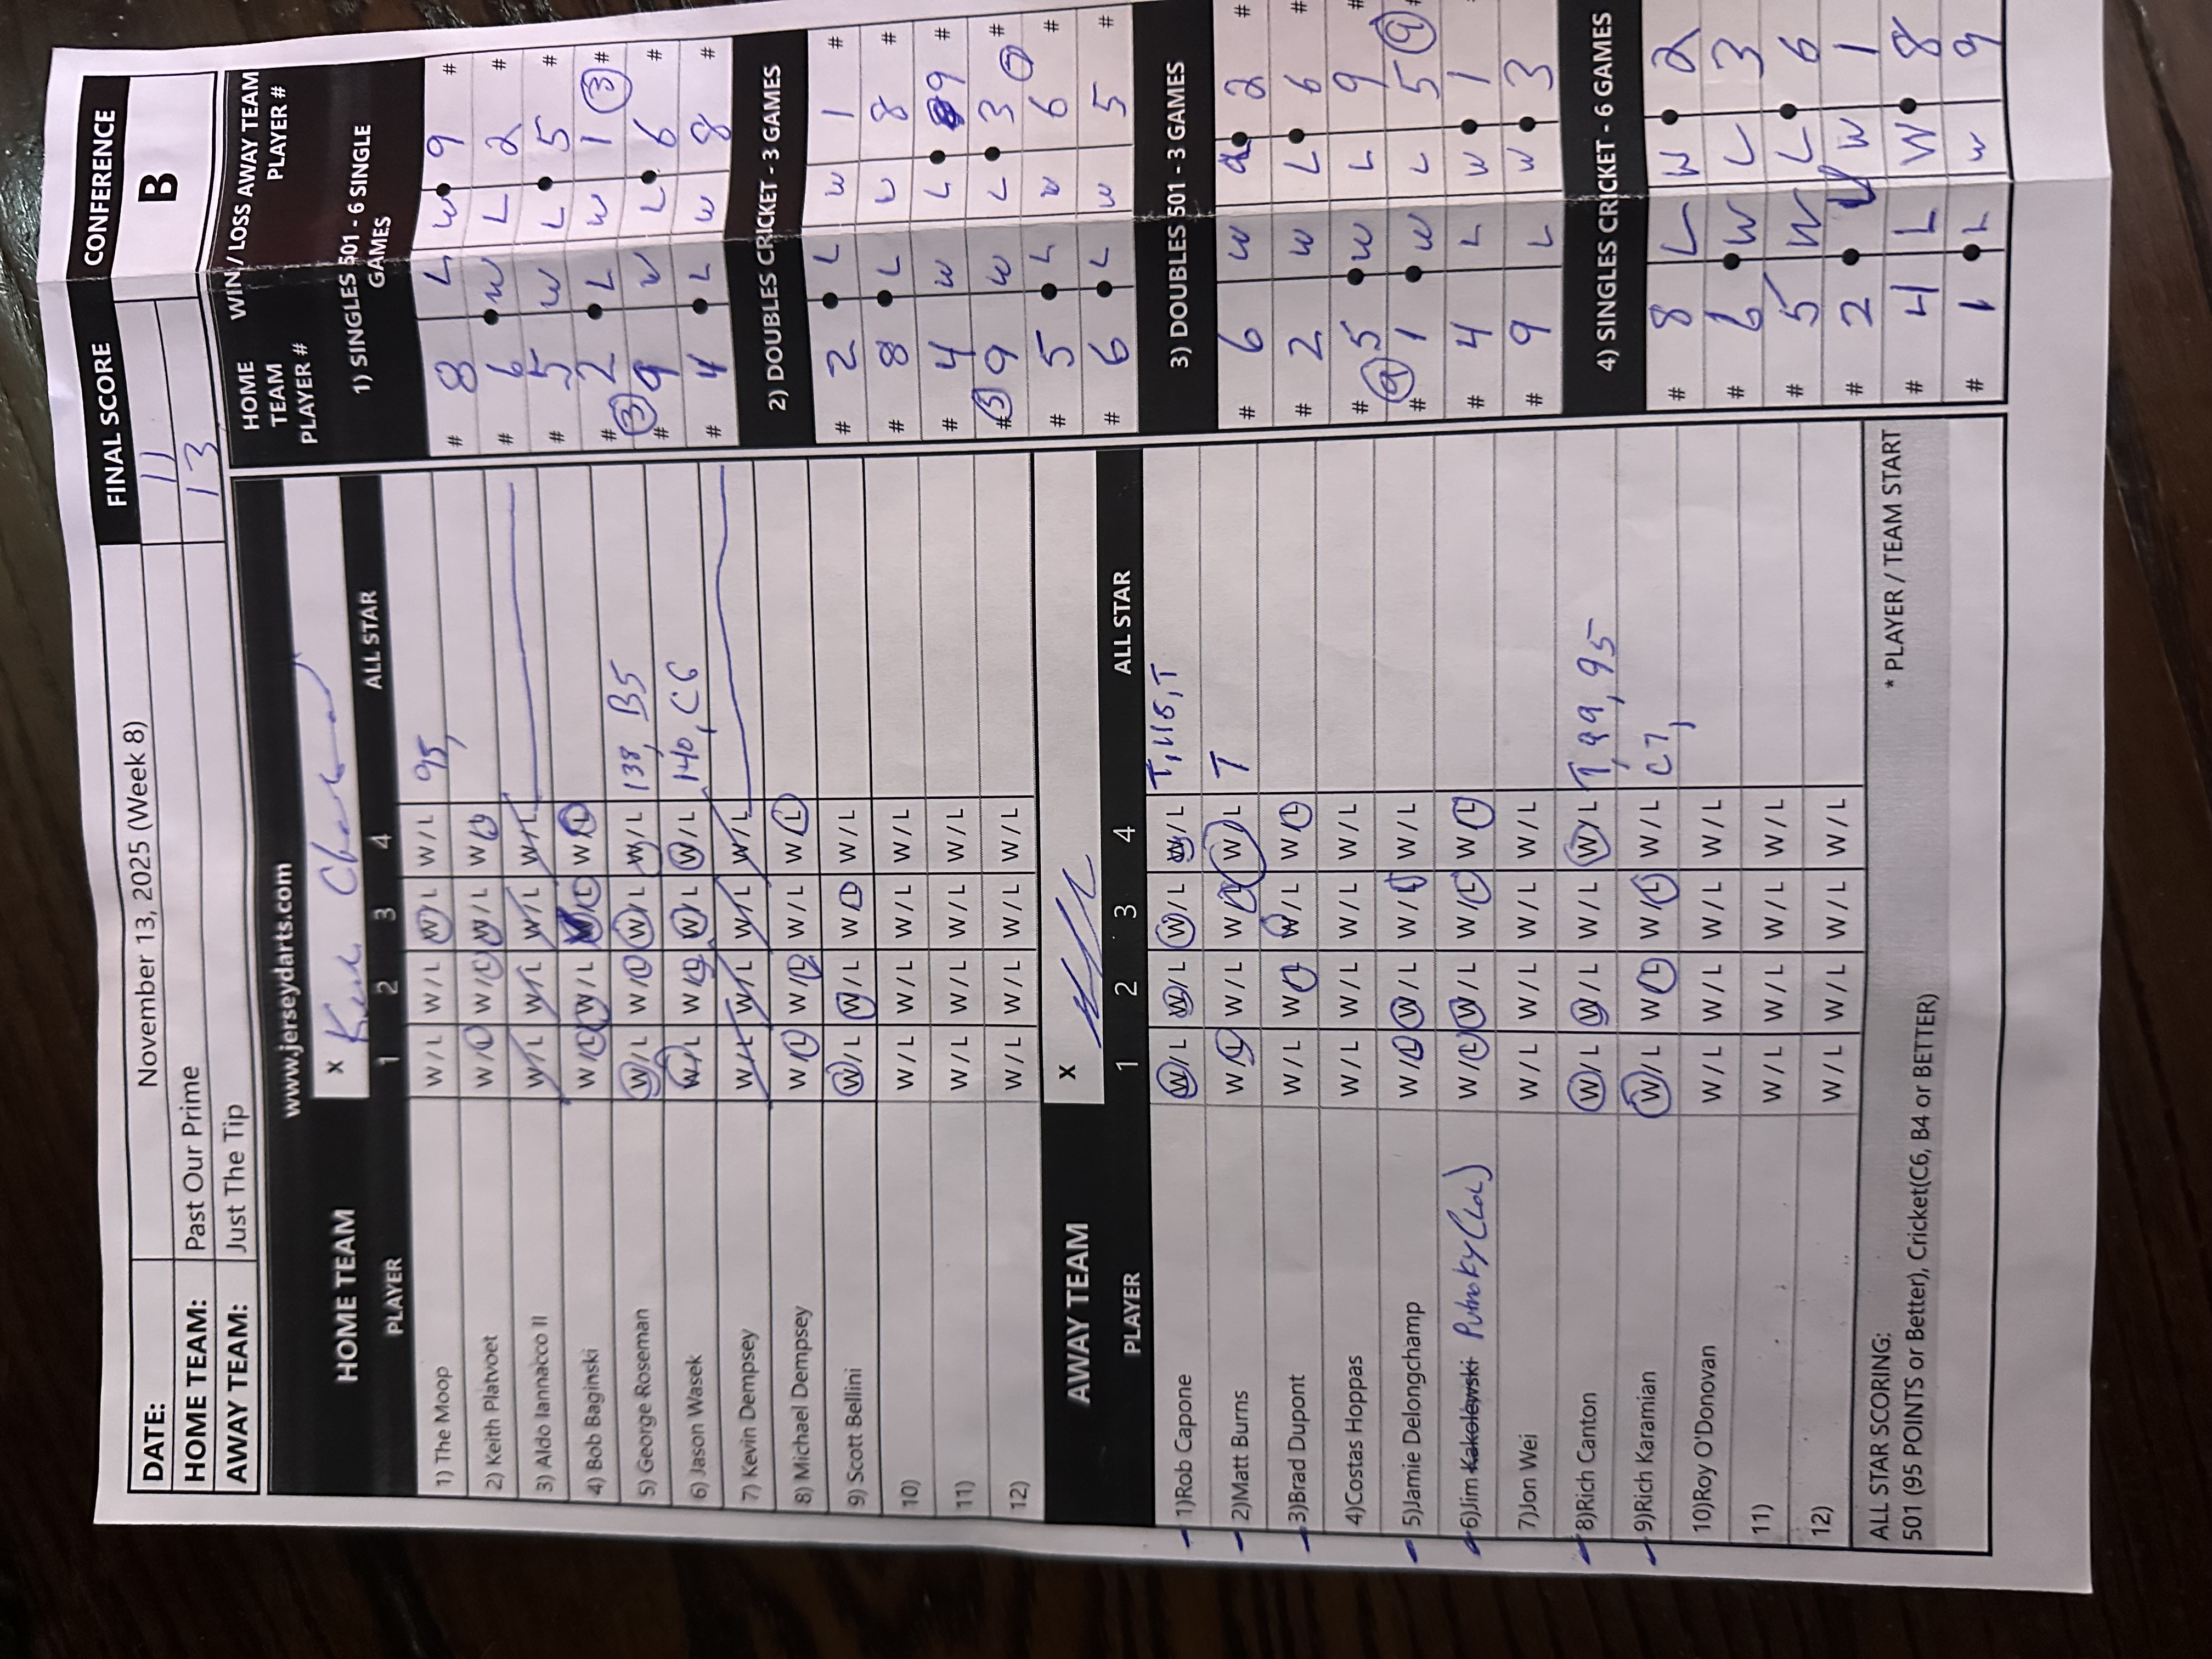 DATE: November 13, 2025 (Week 8) FINAL SCORE CONFERENCE
HOME TEAM: Past Our Prime 11 B
AWAY TEAM: Just The Tip 13
www.jerseydarts.com
HOME TEAM X
PLAYER 1 2 3 4 ALL STAR
1) The Moop W / L W / L W / L W / L 95,
2) Keith Platvoet W / L W / L W / L W / L
3) Aldo Iannacco II W / L W / L W / L W / L
4) Bob Baginski W / L W / L W / L W / L
5) George Roseman W / L W / L W / L W / L 138, B5
6) Jason Wasek W / L W / L W / L W / L 140, C6
7) Kevin Dempsey W / L W / L W / L W / L
8) Michael Dempsey W / L W / L W / L W / L
9) Scott Bellini W / L W / L W / L W / L
10) W / L W / L W / L W / L
11) W / L W / L W / L W / L
12) W / L W / L W / L W / L
AWAY TEAM X
PLAYER 1 2 3 4 ALL STAR
1)Rob Capone W / L W / L W / L W / L T, 115, T
2)Matt Burns W / L W / L W / L W / L T
3)Brad Dupont W / L W / L W / L W / L
4)Costas Hoppas W / L W / L W / L W / L
5)Jamie Delongchamp W / L W / L W / L W / L
6)Jim Kakolewski W / L W / L W / L W / L
7)Jon Wei W / L W / L W / L W / L
8)Rich Canton W / L W / L W / L W / L T, 99, 95
9)Rich Karamian W / L W / L W / L W / L C7,
10)Roy O'Donovan W / L W / L W / L W / L
11) W / L W / L W / L W / L
12) W / L W / L W / L W / L
ALL STAR SCORING: * PLAYER / TEAM START
501 (95 POINTS or Better), Cricket(C6, B4 or BETTER)
HOME TEAM PLAYER # WIN / LOSS AWAY TEAM PLAYER #
1) SINGLES 501 - 6 SINGLE GAMES
# 8 L W 9 #
# 6 W L 2 #
# 5 W L 5 #
# 2 L W 1 3 #
3 # 9 W L 6 #
# 4 L W 8 #
2) DOUBLES CRICKET - 3 GAMES
# 2 L W 1 #
# 8 L W 8 #
# 4 W L 9 #
# 3 9 W L 3 #
# 5 L W 6 #
# 6 L W 5 #
3) DOUBLES 501 - 3 GAMES
# 6 W 2 #
# 2 W L 6 #
# 5 W L 9 #
9 # 1 W L 5 9 #
# 4 L W 1
# 9 L W 3
4) SINGLES CRICKET - 6 GAMES
# 8 L W 2
# 6 W L 3
# 5 W L 6
# 2 L W 1
# 4 L W 8
# 1 L W 9